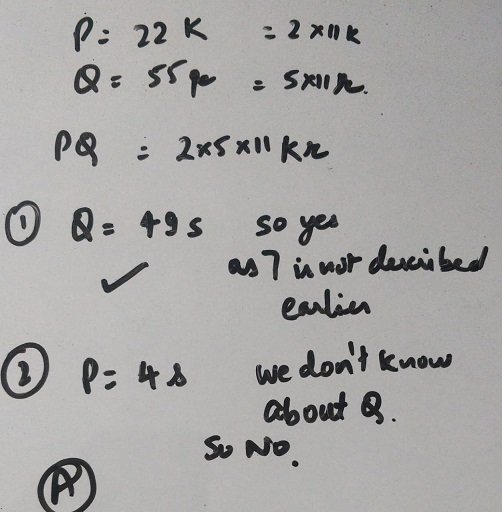 P = 22 K = 2 × 11 K
Q = 55 r = 5 × 11 r.
PQ = 2×5×11 K r
① Q = 49 s so yes
✓ as 7 is not described
earlier
② P = 4 s we don't know
about Q.
So No.
Ⓐ